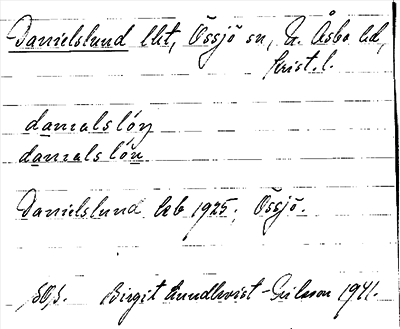 Danielslund lht, Össjö sn, N. Åsbo hd,
Krist. l.
danialslón
danialslón
Danielslund hb 1925, Össjö.
Birgit Lundkvist-Erikson 1941.